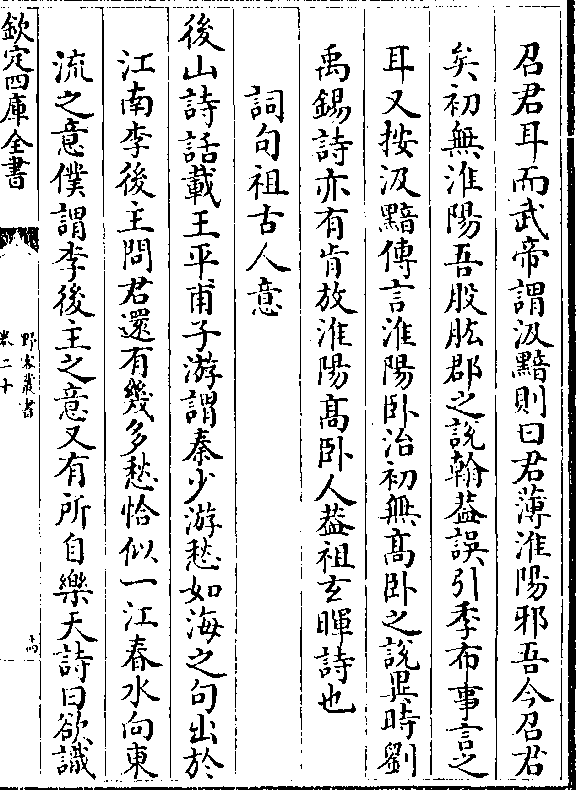 召君耳而武帝謂汲黯則曰君薄淮陽邪吾今召君
矣初無淮陽吾股肱郡之說翰葢誤引季布事言之
耳又按汲黯傳言淮陽卧治初無髙卧之說異時劉
禹錫詩亦有肯放淮陽髙卧人葢祖玄暉詩也
詞句祖古人意
後山詩話載王平甫子游謂秦少游愁如海之句出於
江南李後主問君還有幾多愁恰似一江春水向東
流之意僕謂李後主之意又有所自樂天詩曰欲識
欽定四庫全書
野客叢書
卷二十